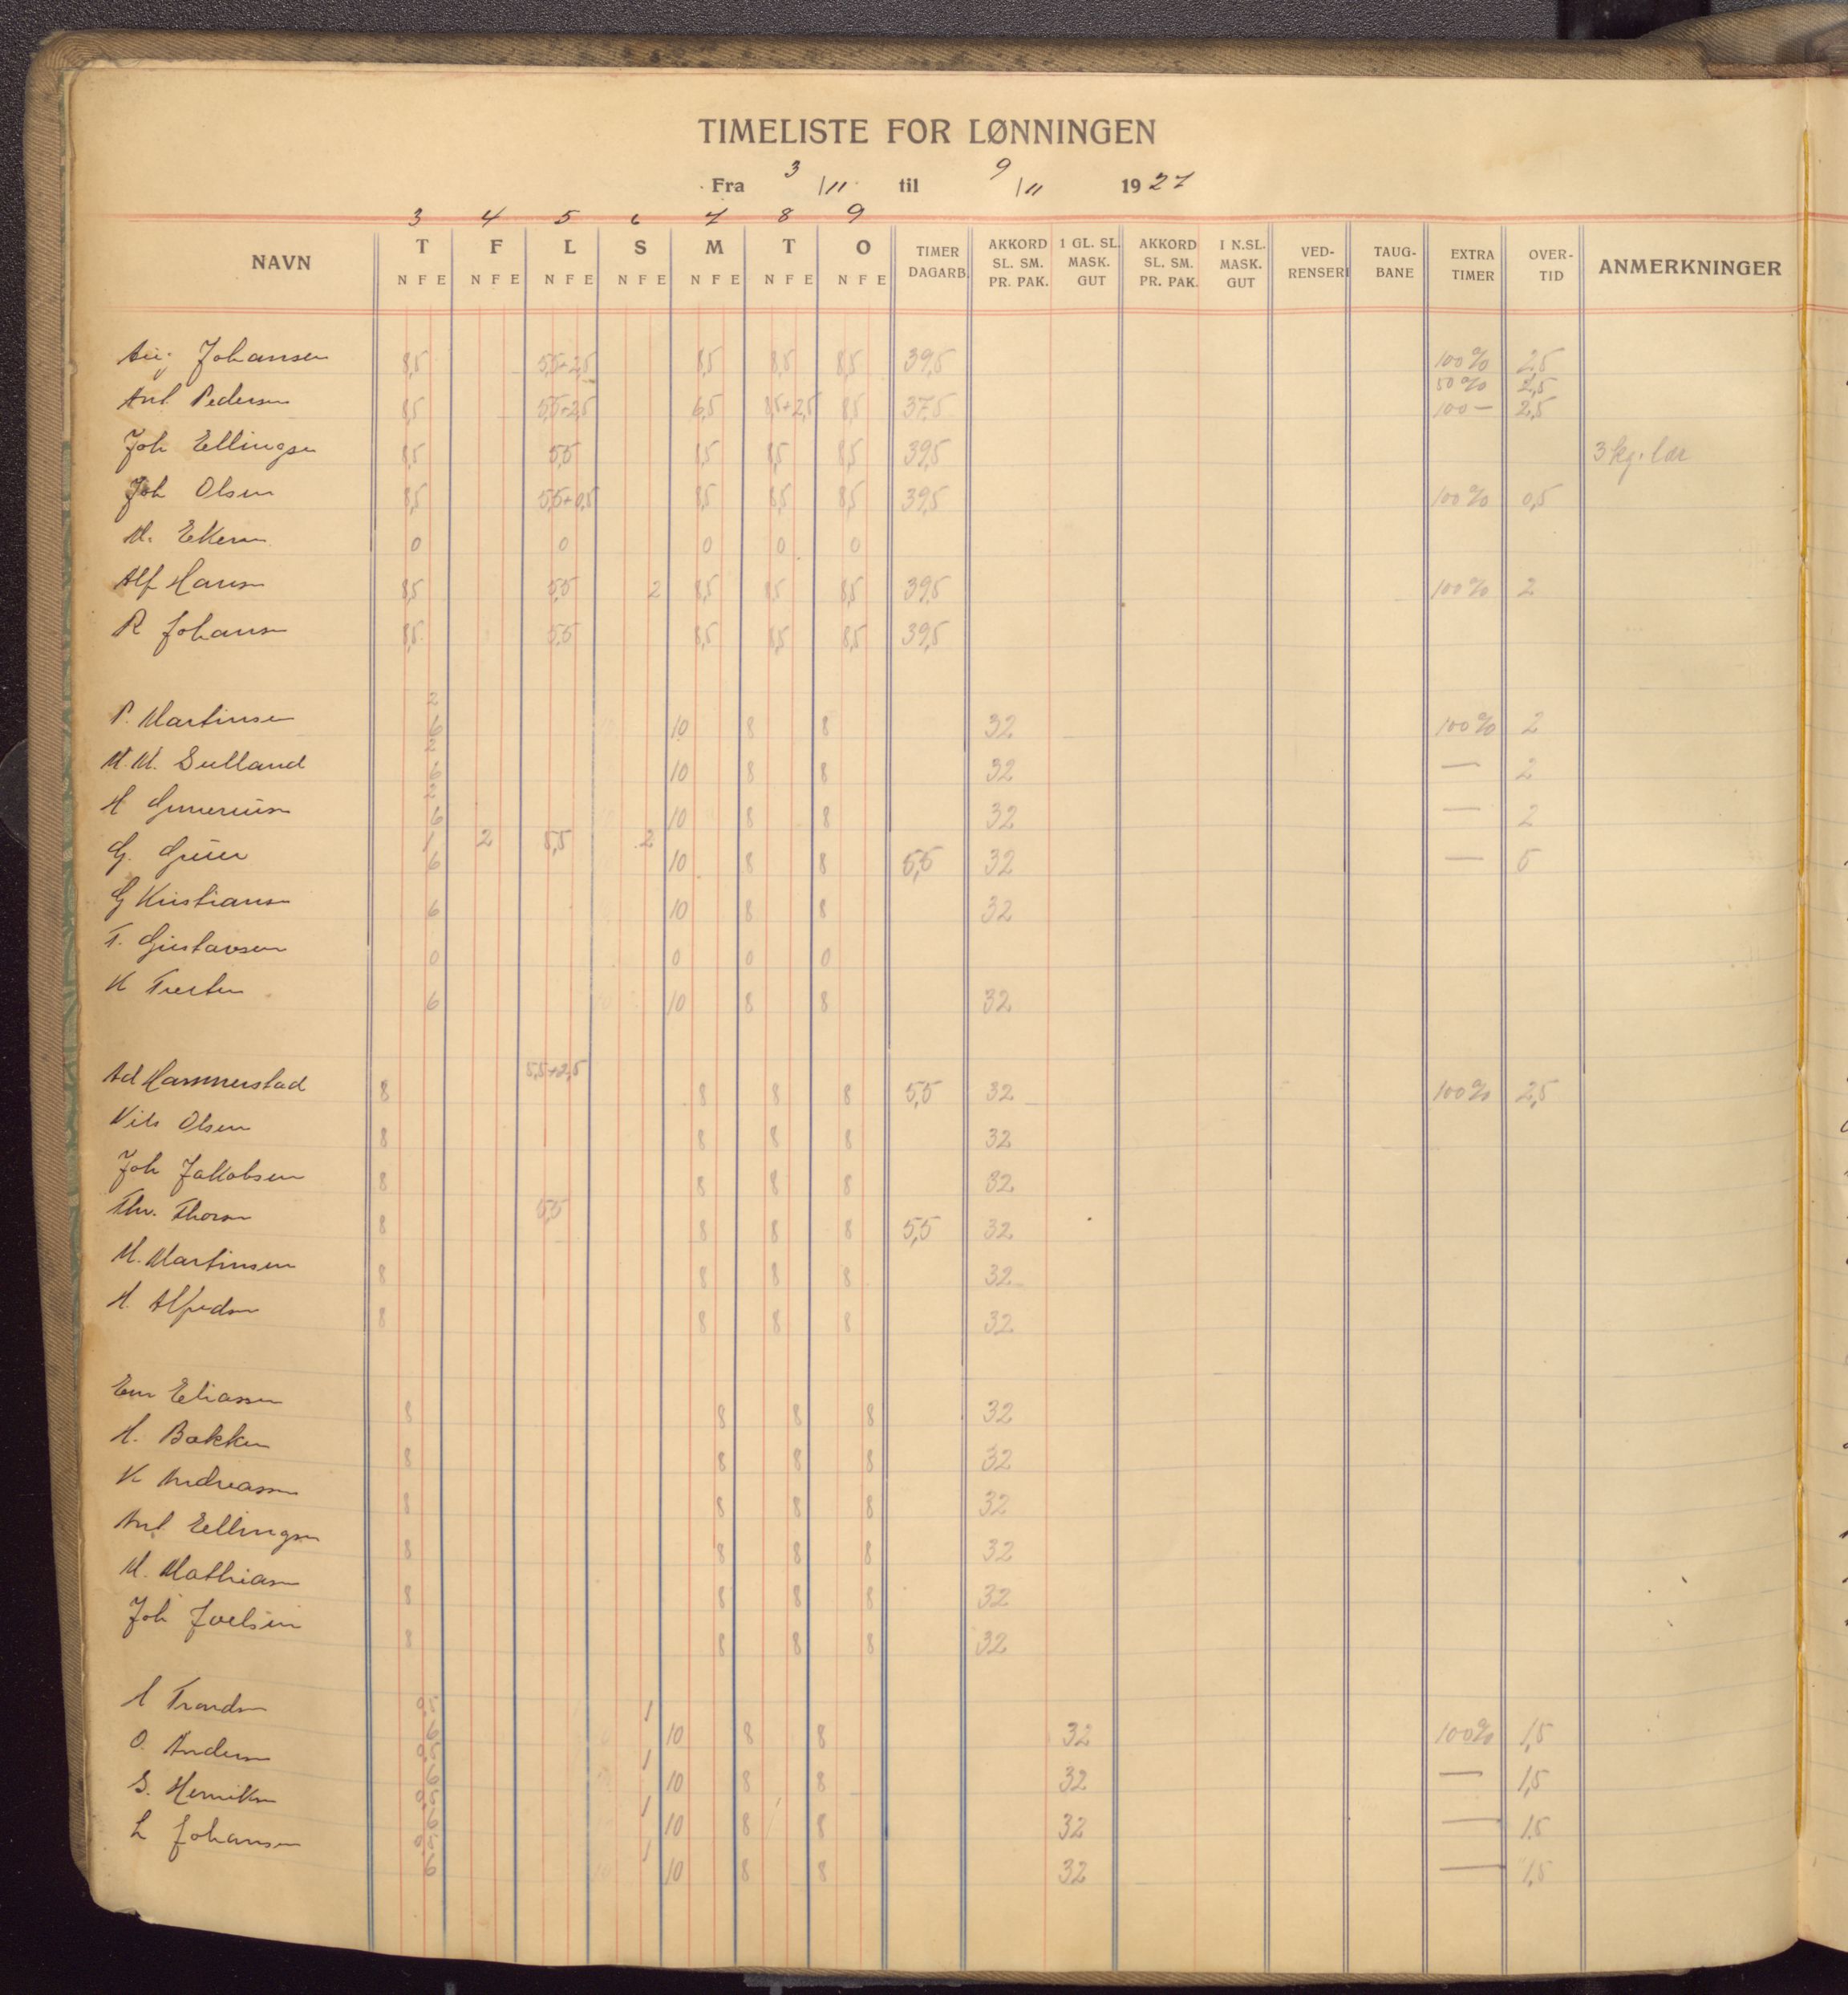 TIMELISTE FOR LØNNINGEN
Fra 3/11 til 9/11 1927
3 4 5 6 7 8 9
NAVN T F L S M T O TIMER DAGARB. AKKORD SL. SM. PR. PAK. 1 GL. SL. MASK. GUT AKKORD SL. SM. PR. PAK. 1 N.SL. MASK. GUT VED-RENSERI TAUG-BANE EXTRA TIMER OVER-TID ANMERKNINGER
N F E N F E N F E N F E N F E N F E N F E
Aug Johansen 8,5 5,5+2,5 8,5 8,5 8,5 39,5 100% 2,5
50% 2,5
Ant Pedersen 8,5 5,5+2,5 6,5 8,5+2,5 8,5 37,5 100— 2,5
Joh Ellingsen 8,5 5,5 8,5 8,5 8,5 39,5 3 kg. lær
Joh Olsen 8,5 5,5+0,5 8,5 8,5 8,5 39,5 100% 0,5
M. Ekern 0 0 0 0 0
Alf Hansen 8,5 5,5 2 8,5 8,5 8,5 39,5 100% 2
R Johansen 8,5 5,5 8,5 8,5 8,5 39,5
2
P. Martinsen 6 10 8 8 32 100% 2
2
M. M. Sulland 6 10 8 8 32 — 2
2
H Gunerius 6 10 8 8 32 — 2
1 2 5,5 2
G. Grüer 6 10 8 8 5,5 32 — 5
G Kristiansen 6 10 8 8 32
T. Gustavsen 0 0 0 0
K 6 10 8 8 32
5,5+2,5
Ad Hammerstad 8 8 8 8 5,5 32 100% 2,5
Nils Olsen 8 8 8 8 32
Joh Jakobsen 8 8 8 8 32
5,5
Thv. Thorsn 8 8 8 8 5,5 32
M. Martinsen 8 8 8 8 32
H. Alfredsn 8 8 8 8 32
Em Eliassen 8 8 8 8 32
H. Bakken 8 8 8 8 32
K Andreassn 8 8 8 8 32
Ant Ellingsn 8 8 8 8 32
M. Mathiasn 8 8 8 8 32
Joh Joelsen 8 8 8 8 32
0,5 1
A Trondsn 6 10 8 8 32 100% 1,5
0,5 1
O. Andersn 6 10 8 8 32 — 1,5
0,5 1
S. Henriksn 6 10 8 8 32 — 1,5
0,5 1
L Johansen 6 10 8 8 32 — 1,5